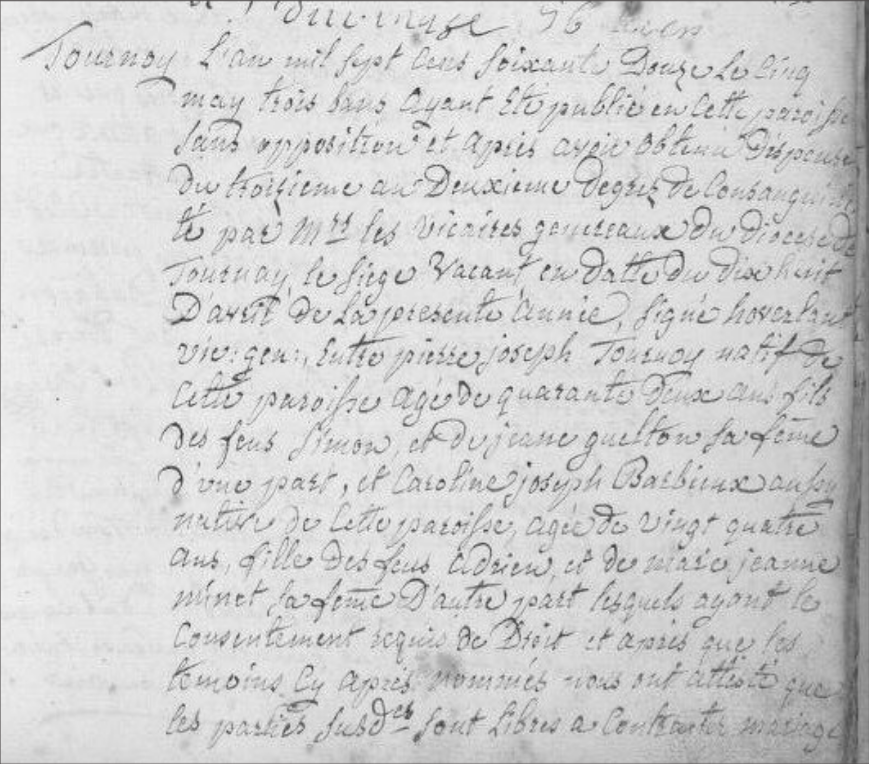 Tournoy L'an mil sept Cens soixante Douze Le Cinq
may trois bans ayant Eté publié en Cette paroisse
sans opposition et après avoir obtenu Dispense
du troisieme au Deuxieme degrez de Consanguini
té par Mrs les vicaires genereaux du diocese de
Tournay, le siege Vacant en datte du dix huit
D'avril de la presente année, signé hoverlant
vic: gen:, Entre pierre joseph Tournoy natif de
Cette paroisse agé de quarante deux ans fils
des feus Simon, et de jeane guelton sa feme
d'une part, et Caroline joseph Barbieux aussy
native de Cette paroisse, agée de vingt quatre
ans, fille des feus adrien, et de marie jeanne
minet sa feme D'autre part lesquels ayant le
Consentement requis de Droit et après que les
temoins Cy après nommés nous ont attesté que
les parties susdes sont Libres a Contracter mariage